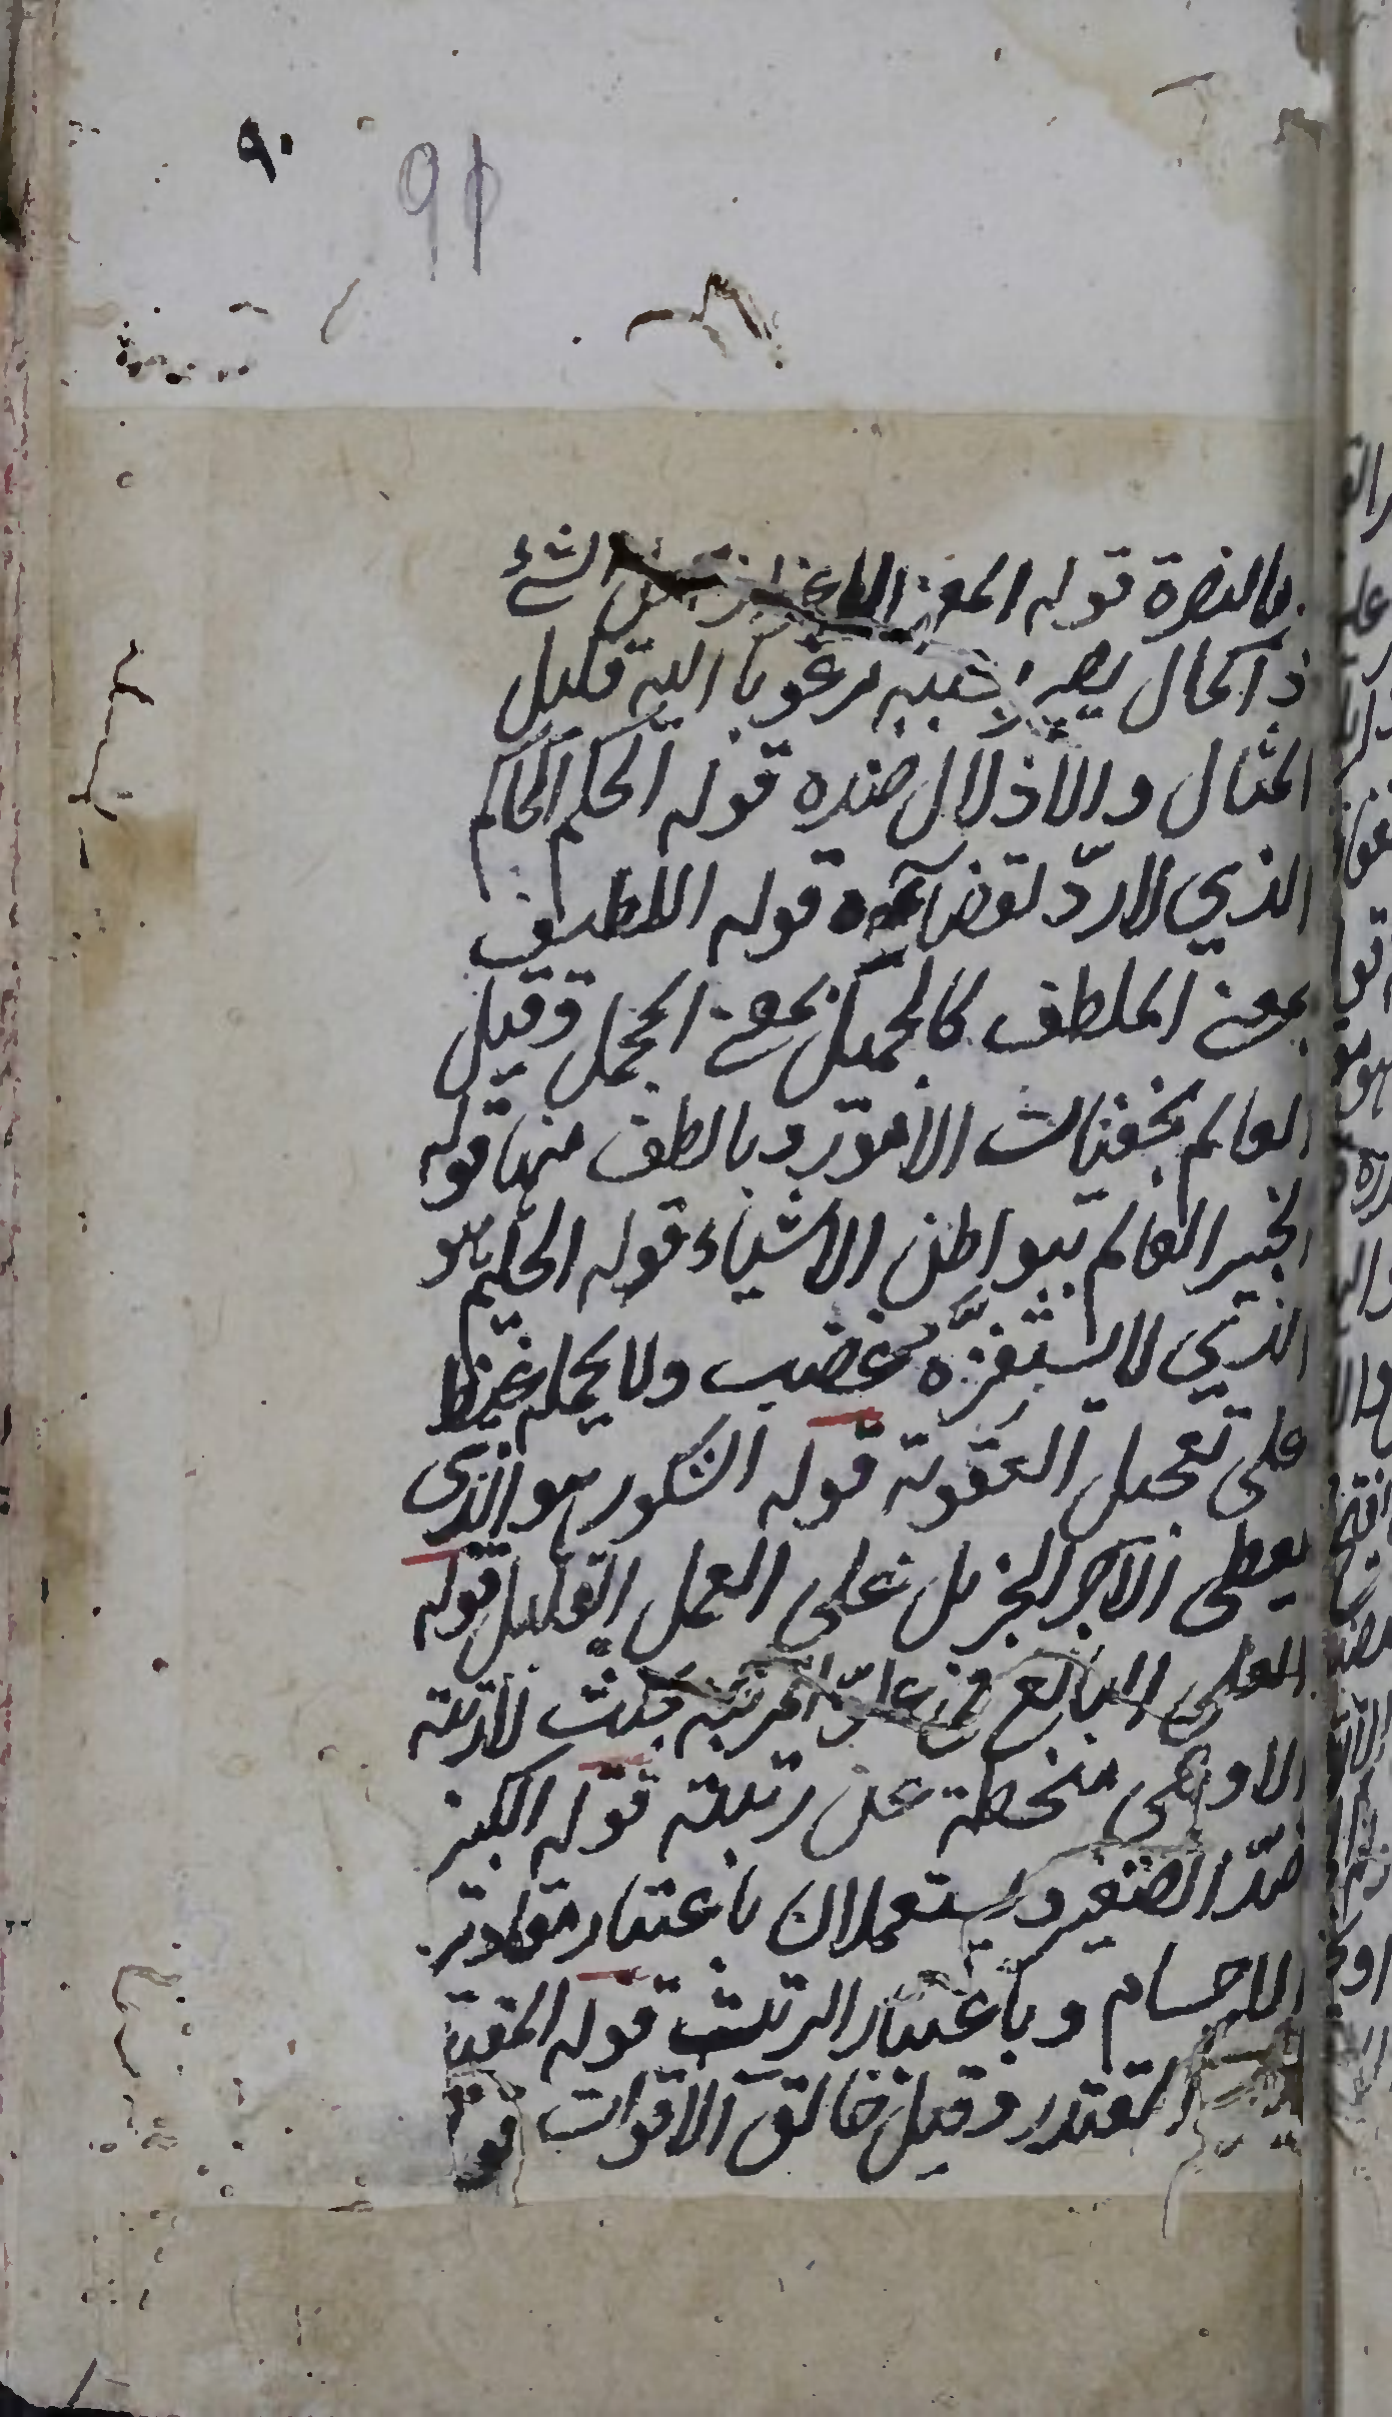 ٩٠
91
بالنصرة قوله المعز الاعزاز جعل الشئ
ذا كمال يصير بسببه مرغوبا اليه قليل
المثال والاذلال ضده قوله الحكم الحاكم
الذي لا رد لقضآئه قوله اللطيف
بمعنى الملطف كالجميل بمعنى المجمل وقيل
العالم بخفيات الامور وبالطف منها قوله
الخبير العالم ببواطن الاشياء قوله الحليم هو
الذي لا يستفزّه غضب ولا يحمله غيظ
على تعجيل العقوبة قوله الشكور هو الذي
يعطى الاجر الجزيل على العمل القليل قوله
العلى البالغ في علوّ المرتبة بحيث لا رتبة
الا وهى منحطة عن رتبته قوله الكبير
ضدّ الصغير ويستعملان باعتبار مقادير
الاجسام وباعتبار الرتب قوله المقيت
المقتدر وقيل خالق الاقوات قو